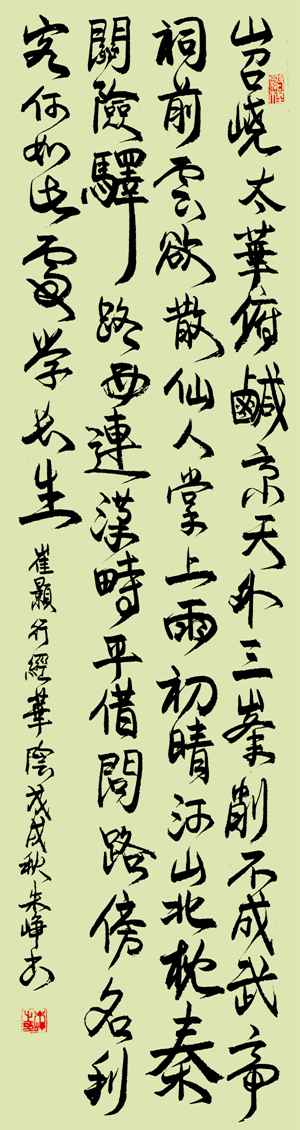 岧嶢太華俯鹹京天外三峯削不成武帝
祠前雲欲散仙人掌上雨初晴河山北枕秦
關險驛路西連漢畤平借問路傍名利
客何如此處学長生
崔顥行經華陰戊戌秋朱崢书